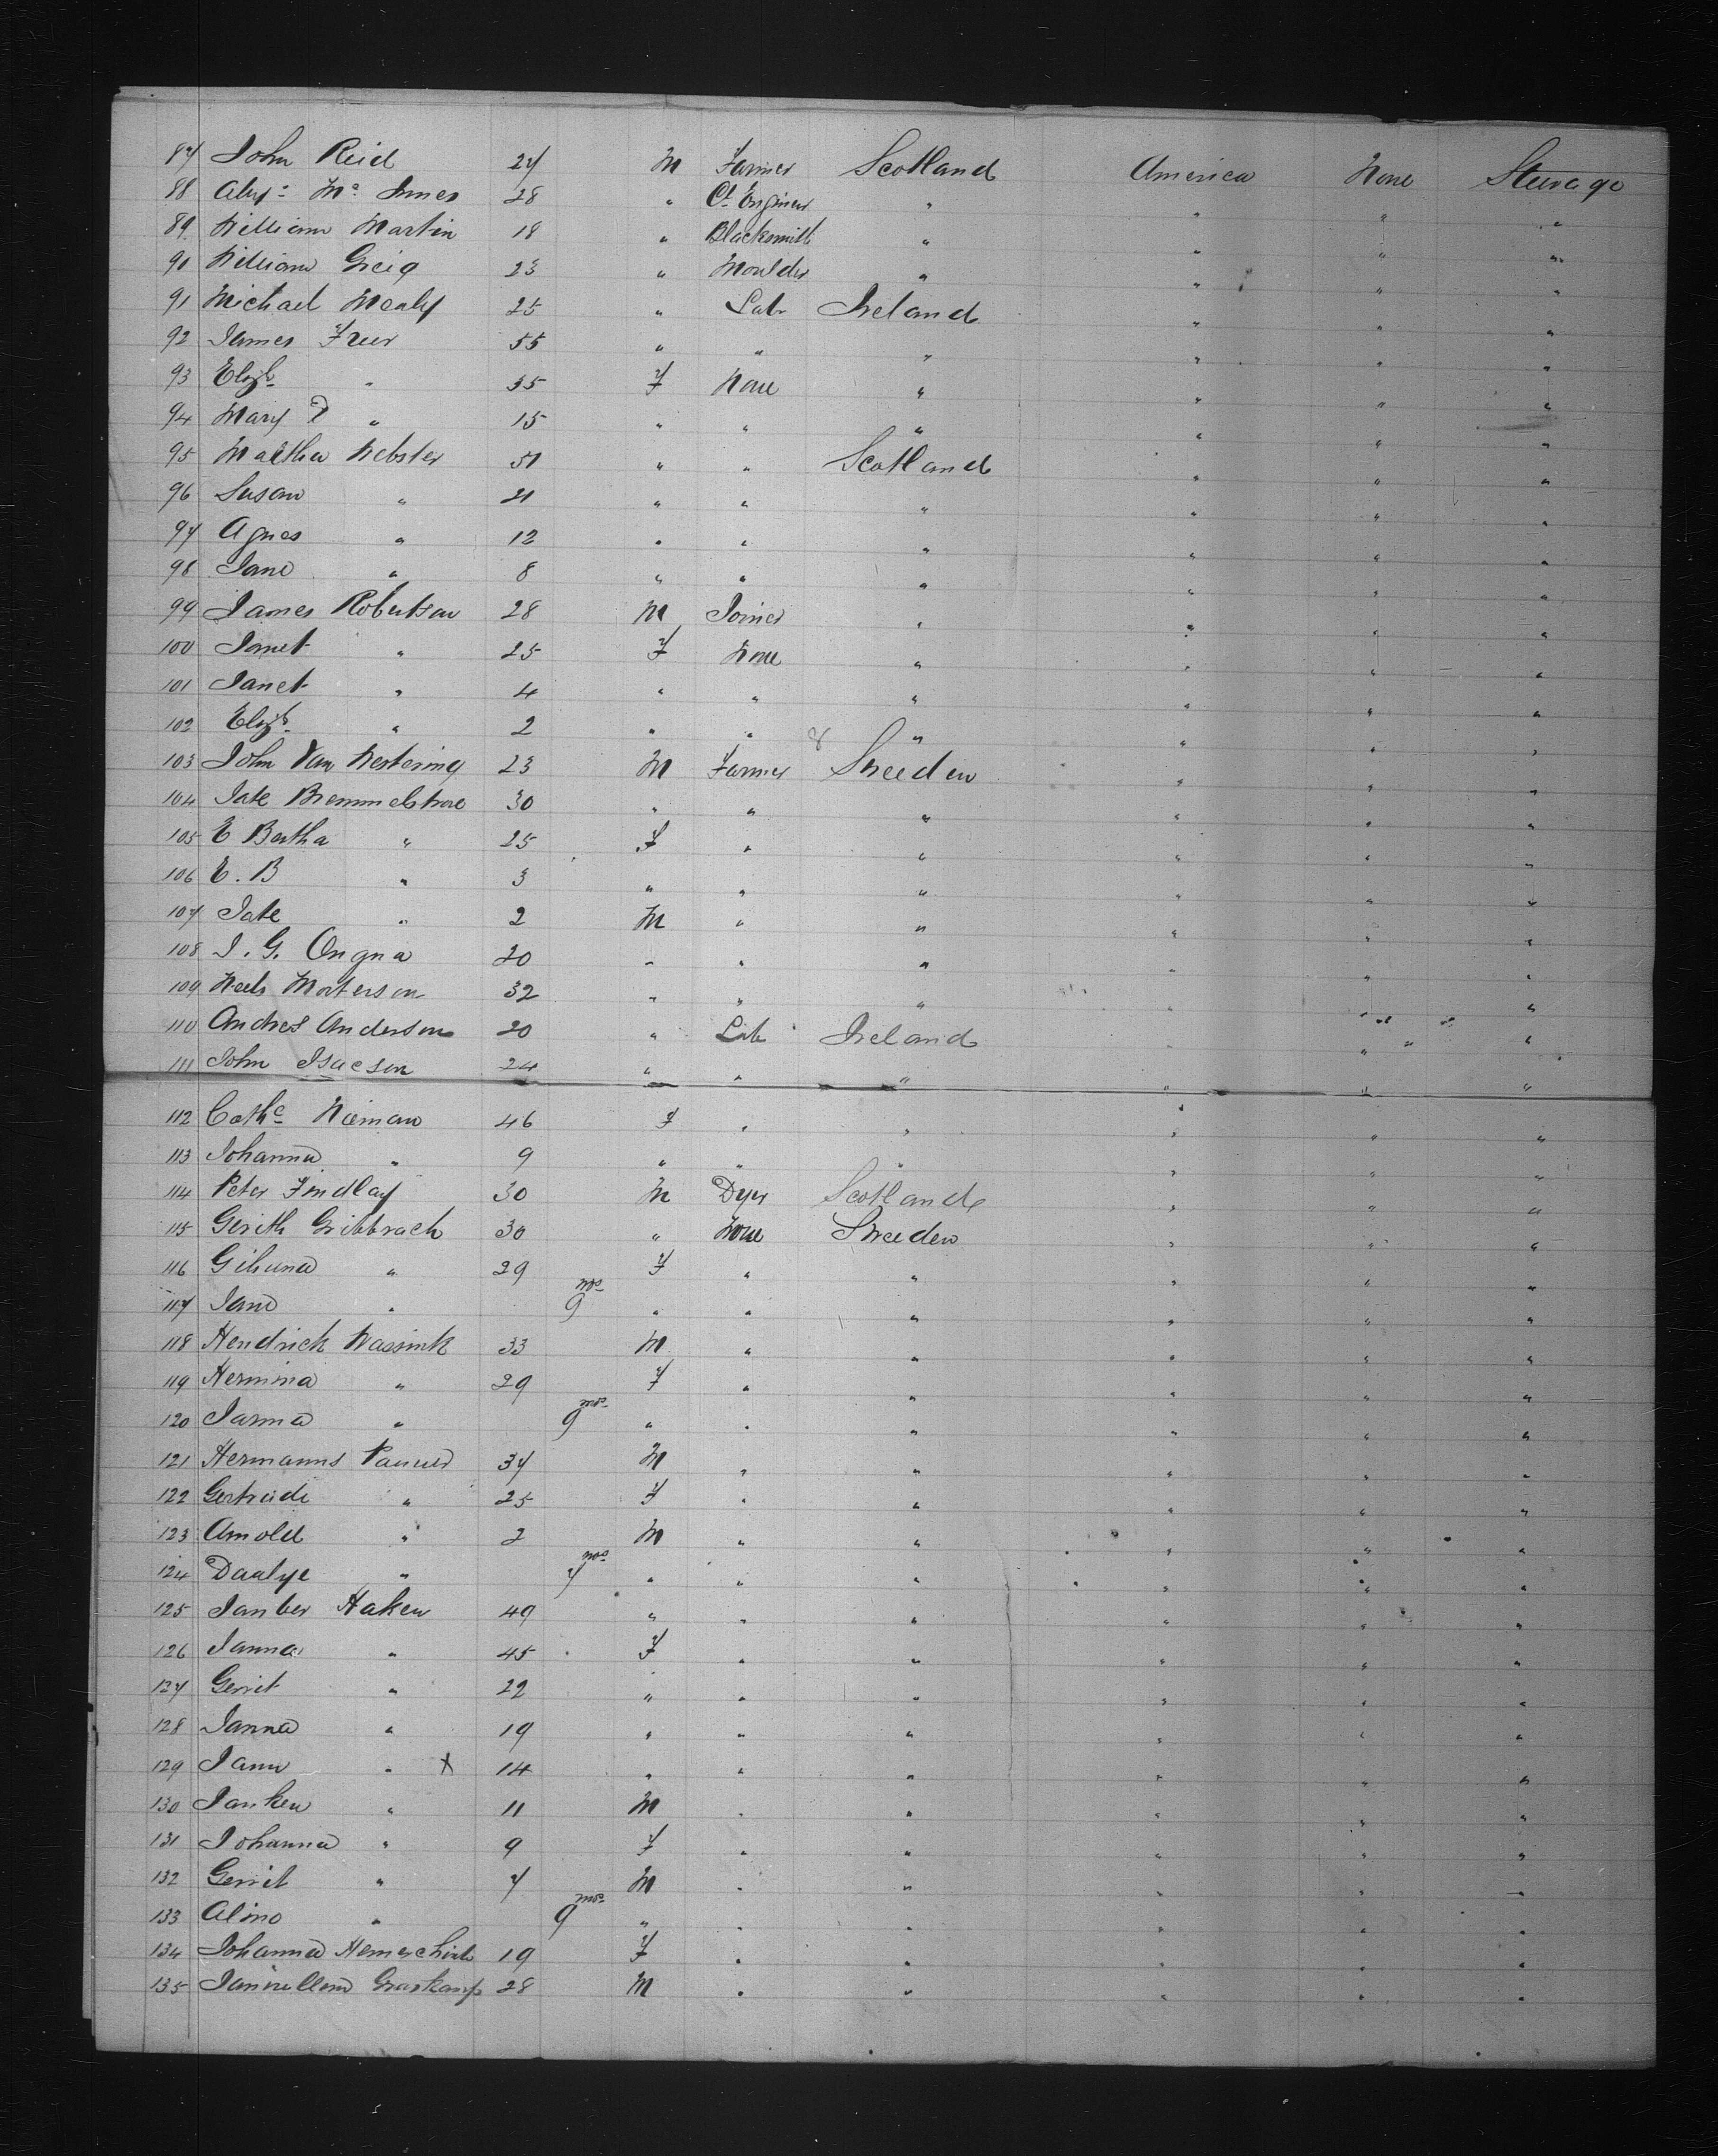 87 John Reid 27 M Farmer Scotland America None Steerage
88 Alexr. Mc Innes 28 " Cl. Engineer " " " "
89 William Martin 18 " Blacksmith " " " "
90 William Greig 23 " Moulder " " " "
91 Michael Mealy 25 " Labr Ireland " " "
92 James Freer 55 " " " " " "
93 Elizh. " 55 F None " " " "
94 Mary " 15 " " " " " "
95 Martha Webster 51 " " Scotland " " "
96 Susan " 21 " " " " " "
97 Agnes " 12 " " " " " "
98 Jane " 8 " " " " " "
99 James Robertson 28 M Joiner " " " "
100 Janet " 25 F None " " " "
101 Janet " 4 " " " " " "
102 Elizh. " 2 " " " " " "
103 John Van Westering 23 M Farmer Sweeden " " "
104 Jate Bremmelstroe 30 " " " " " "
105 E Bertha " 25 F " " " " "
106 E. B " 3 " " " " " "
107 Jate " 2 M " " " " "
108 J. G. Ongna 20 " " " " " "
109 Neels Morterson 32 " " " " " "
110 Andres Anderson 20 " Lab Ireland " " "
111 John Isacson 24 " " " " " "
112 Cathe. Nieman 46 F " " " " "
113 Johanna " 9 " " " " " "
114 Peter Findlay 30 M Dyer Scotland " " "
115 Gerith Gribbrach 30 " None Sweeden " " "
116 Gihana " 29 F " " " " "
117 Jane " 9 mos " " " " " "
118 Hendrick Wassink 33 M " " " " "
119 Hermina " 29 F " " " " "
120 Janna " 9 mos " " " " " "
121 Hermanns 37 M " " " " "
122 Gertrude " 25 F " " " " "
123 Arnold " 2 M " " " " "
124 Daalye " 7 mos " " " " " "
125 Janber Haken 49 " " " " " "
126 Janna " 45 F " " " " "
127 Gerrit " 22 " " " " " "
128 Janna " 19 " " " " " "
129 Jann " X 14 " " " " " "
130 Janken " 11 M " " " " "
131 Johanna " 9 F " " " " "
132 Gerrit " 7 M " " " " "
133 Alino " 9 mos " " " " " "
134 Johanna 19 F " " " " "
135 Graskamp 28 M " " " " "